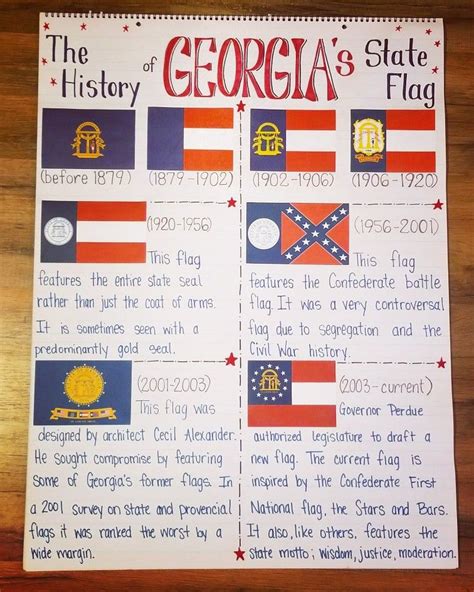 The History of GEORGIA's State Flag
(before 1879)
(1879-1902)
(1902-1906)
(1906-1920)
(1920-1956)
This flag
features the entire state seal
rather than just the coat of arms.
It is sometimes seen with a
predominantly gold seal.
(1956-2001)
This flag
features the Confederate battle
flag. It was a very controversal
flag due to segregation and the
Civil War history.
(2001-2003)
This flag was
designed by architect Cecil Alexander.
He sought compromise by featuring
some of Georgia's former flags. In
a 2001 survey on state and provencial
flags it was ranked the worst by a
wide margin.
(2003-current)
Governor Perdue
authorized legislature to draft a
new flag. The current flag is
inspired by the Confederate First
National flag, the Stars and Bars.
It also, like others, features the
state motto; wisdom, justice, moderation.